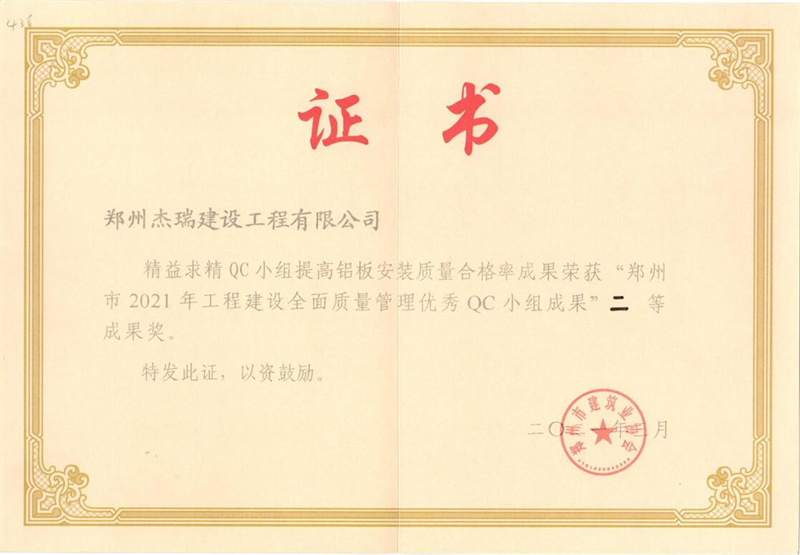 证 书
郑州杰瑞建设工程有限公司
精益求精QC小组提高铝板安装质量合格率成果荣获“郑州
市2021年工程建设全面质量管理优秀QC小组成果”二 等
成果奖。
特发此证，以资鼓励。
郑州市建筑业协会
二〇二一年三月